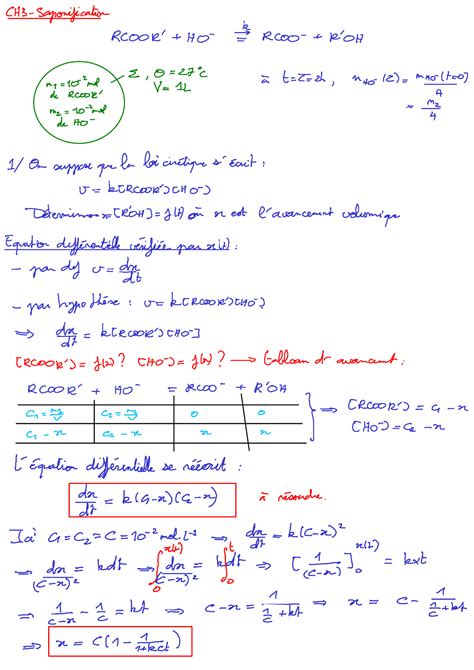 CH3 - Saponification
RCOOR' + HO⁻ =(k) RCOO⁻ + R'OH
m₁ = 10⁻² mol de RCOOR'
m₂ = 10⁻² mol de HO⁻
Σ, θ = 27°C
V = 1L
à t = τ = 2h, n_HO⁻(τ) = n_HO⁻(t=0)/4
= m₂/4
1/ On suppose que la loi cinétique s'écrit :
v = k[RCOOR'][HO⁻]
Déterminons [R'OH] = f(t) où x est l'avancement volumique
Equation différentielle vérifiée par x(t) :
- par def v = dx/dt
- par hypothèse : v = k[RCOOR'][HO⁻]
⇒ dx/dt = k[RCOOR'][HO⁻]
[RCOOR'] = f(x) ? [HO⁻] = f(x) ? → tableau d'avancement :
RCOOR' + HO⁻ = RCOO⁻ + R'OH
C₁ = m₁/V C₂ = m₂/V 0 0
C₁ - x C₂ - x x x
⇒ [RCOOR'] = C₁ - x
[HO⁻] = C₂ - x
L'équation différentielle se réécrit :
dx/dt = k(C₁-x)(C₂-x) à résoudre.
Ici C₁ = C₂ = C = 10⁻² mol.L⁻¹ ⇒ dx/dt = k(C-x)²
⇒ dx/(C-x)² = kdt ⇒ ∫₀^x(t) dx/(C-x)² = ∫₀^t kdt ⇒ [1/(C-x)]₀^x(t) = kxt
⇒ 1/(C-x) - 1/C = kt ⇒ C-x = 1/(1/C + kt) ⇒ x = C - 1/(1/C + kt)
⇒ x = C(1 - 1/(1+kct))